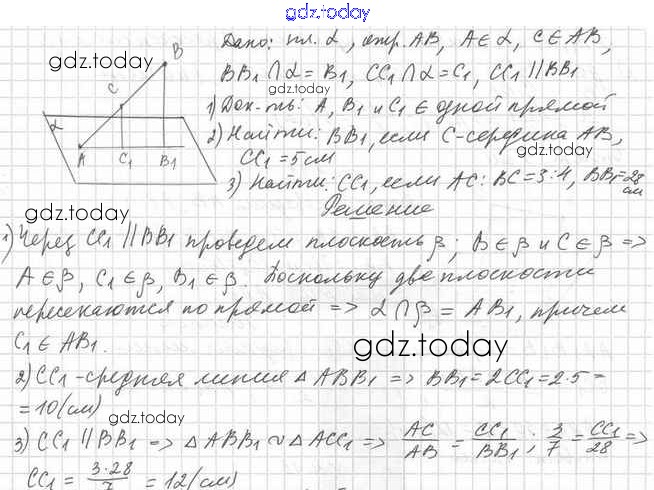 gdz.today
Дано: пл. α, отр. AB, A∈α, C∈AB,
gdz.today
BB1∩α=B1, CC1∩α=C1, CC1 || BB1
gdz.today
1) Док-ть: A, B1 и C1 ∈ одной прямой
2) Найти: BB1, если C-середина AB,
CC1=5см
gdz.today
3) Найти: CC1, если AC:BC=3:4, BB1=28 см
B
C
α
A C1 B1
gdz.today
Решение
1) Через CC1 || BB1 проведем плоскость β; B∈β и C∈β =>
gdz.today
A∈β, C1∈β, B1∈β. Поскольку две плоскости
пересекаются по прямой => α∩β = AB1, причем
C1∈AB1.
gdz.today
2) CC1-средняя линия △ABB1 => BB1=2CC1=2·5=
=10(см)
gdz.today
3) CC1 || BB1 => △ABB1 ∾ △ACC1 => AC/AB = CC1/BB1; 3/7 = CC1/28 =>
CC1 = 3·28/7 = 12(см)